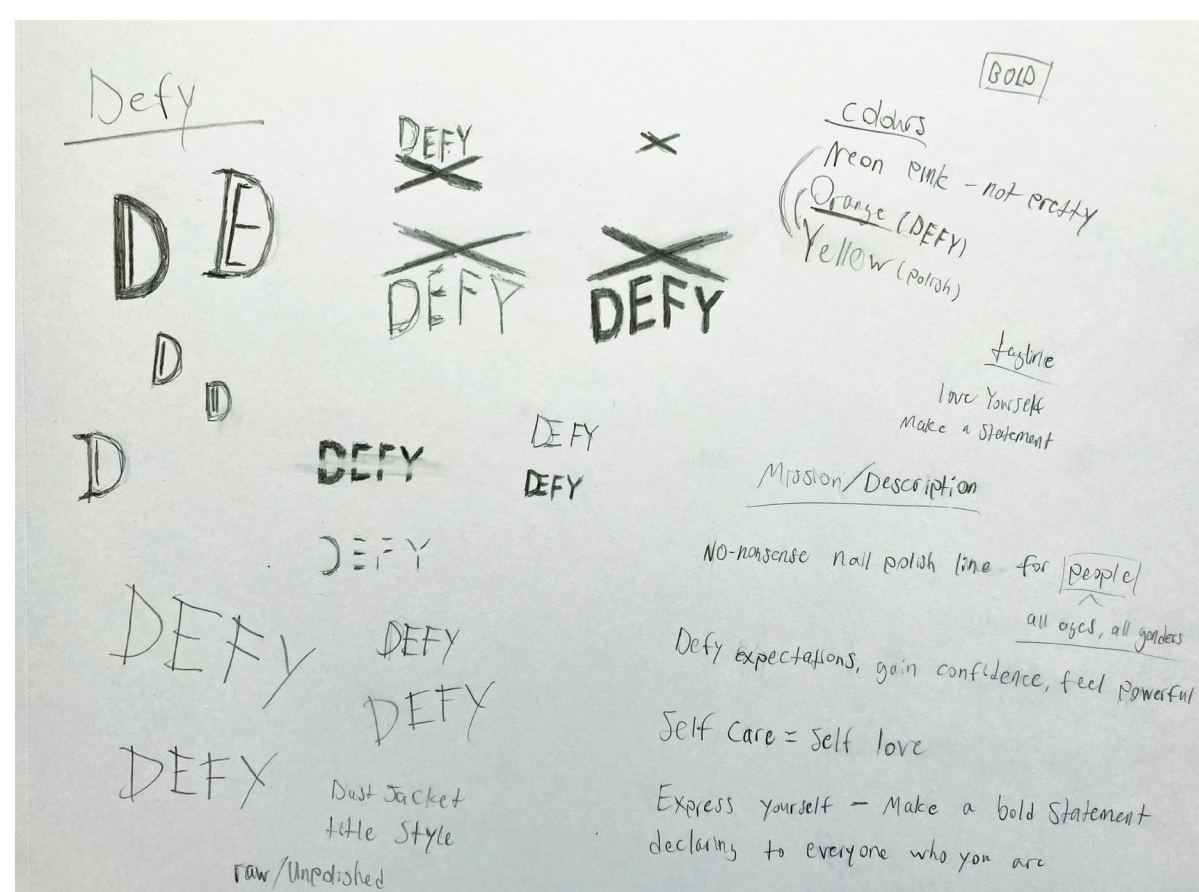 Defy
D
DE
D
D
D
DEFY
DEFY
DEFY
DEFY
DEFY
DEFY
DEFY
DEFY
DEFY
DEFY
DEFY
Dust Jacket
title Style
raw/Unpolished
BOLD
colours
Neon pink - not pretty
Orange (DEFY)
Yellow (polish)
tagline
love Yourself
Make a Statement
Mission/Description
NO-nonsense nail polish line for people
all ages, all genders
Defy expectations, gain confidence, feel powerful
Self Care = Self love
Express yourself – Make a bold Statement
declaring to everyone who you are